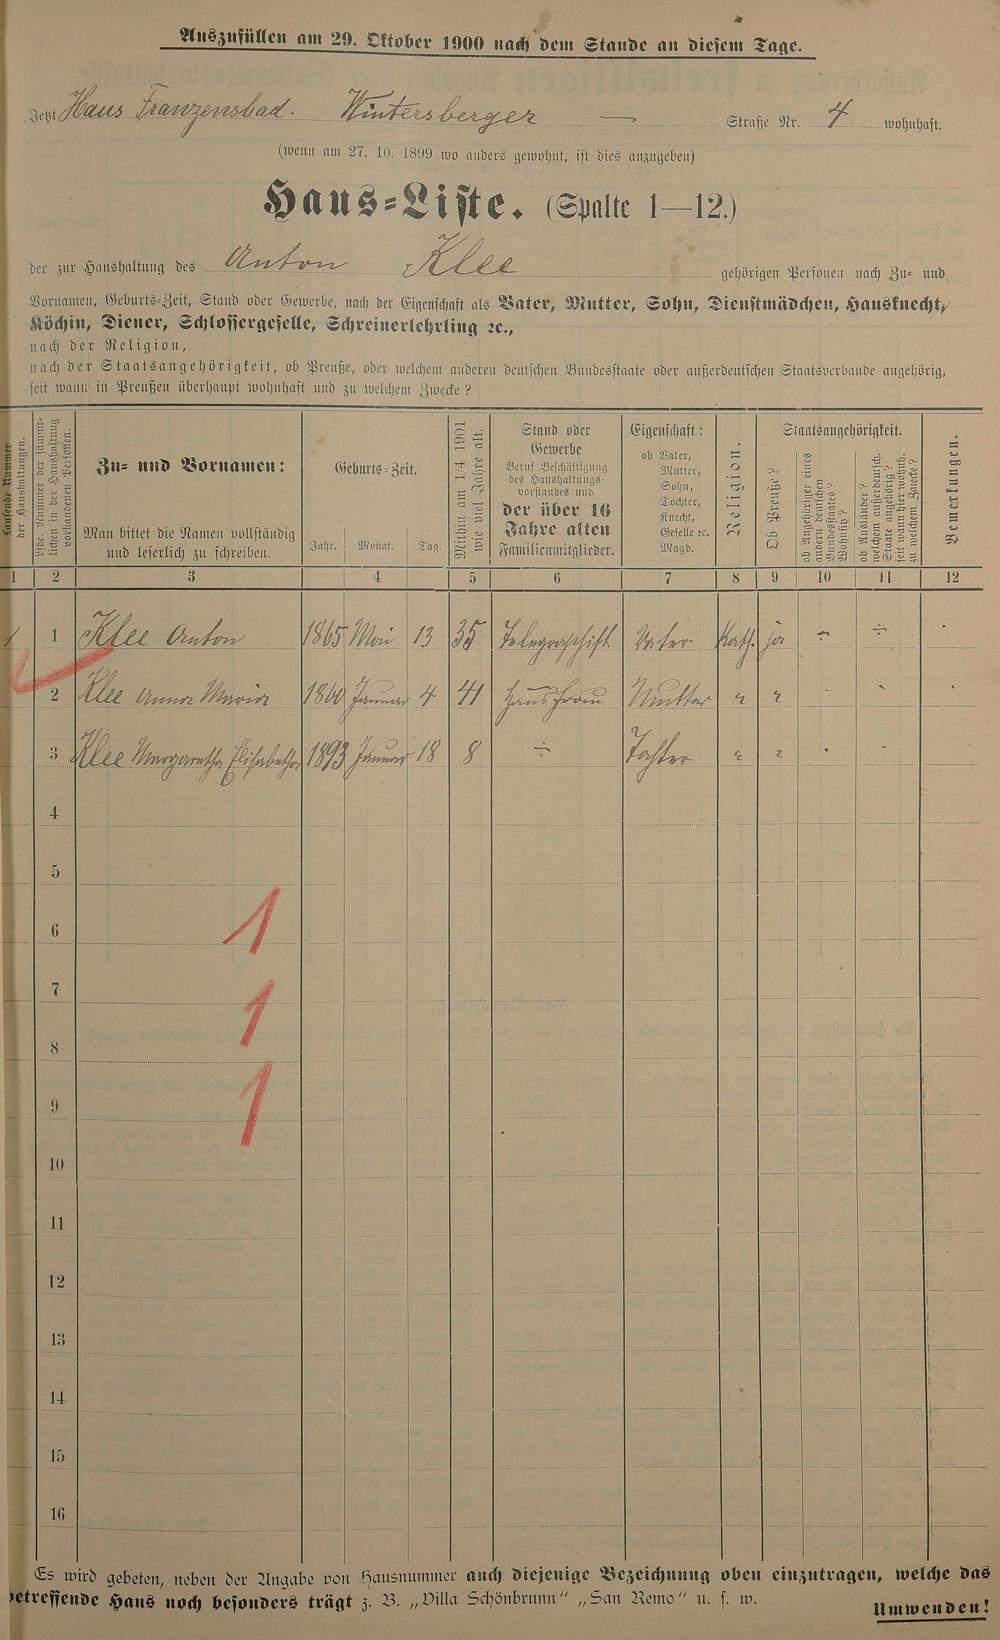 Auszufüllen am 29. Oktober 1900 nach dem Stande an diesem Tage.
Jetzt Haus Franzensbad. Wintersberger — Straße Nr. 4 wohnhaft.
(wenn am 27. 10. 1899 wo anders gewohnt, ist dies anzugeben)
Haus-Liste. (Spalte 1—12.)
der zur Haushaltung des Anton Klee gehörigen Personen nach Zu- und
Vornamen, Geburts-Zeit, Stand oder Gewerbe, nach der Eigenschaft als Vater, Mutter, Sohn, Dienstmädchen, Hausknecht,
Köchin, Diener, Schlossergeselle, Schreinerlehrling ꝛc.,
nach der Religion,
nach der Staatsangehörigkeit, ob Preuße, oder welchem anderen deutschen Bundesstaate oder außerdeutschen Staatsverbande angehörig,
seit wann in Preußen überhaupt wohnhaft und zu welchem Zwecke?
Laufende Nummer
der Haushaltungen.
Lfde. Nummer der sämmt-
lichen in der Haushaltung
vorhandenen Personen.
Zu- und Vornamen:
Man bittet die Namen vollständig
und leserlich zu schreiben.
Geburts-Zeit.
Jahr. Monat. Tag.
Mithin am 1/4 1901
wie viel Jahre alt.
Stand oder
Gewerbe
Beruf Beschäftigung
des Haushaltungs-
vorstandes und
der über 16
Jahre alten
Familienmitglieder.
Eigenschaft:
ob Vater,
Mutter,
Sohn,
Tochter,
Knecht,
Geselle ꝛc.
Magd.
Religion.
Staatsangehörigkeit.
Ob Preuße?
ob Angehöriger eines
andern deutschen
Bundesstaates?
Wohnsitz?
ob Ausländer?
welchem außerdeutsch.
Staate angehörig?
seit wann hier wohnh.
zu welchem Zwecke?
Bemerkungen.
1 2 3 4 5 6 7 8 9 10 11 12
1 1 Klee Anton 1865 Mai 13 35 Telegraphist Vater Kath. ja - ÷ -
2 Klee Anna Maria 1860 Januar 4 41 Hausfrau Mutter " " - - -
3 Klee Margaretha Elisabetha 1893 Januar 18 8 ÷ Tochter " " - -
4
5
6 1
7 1
8
9 1
10
11
12
13
14
15
16
Es wird gebeten, neben der Angabe von Hausnummer auch diejenige Bezeichnung oben einzutragen, welche das
betreffende Haus noch besonders trägt z. B. „Villa Schönbrunn" „San Remo" u. s. w.
Umwenden!